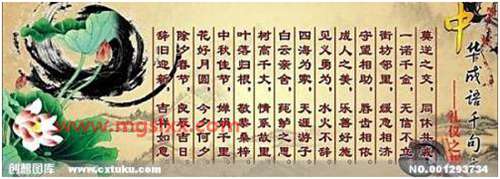 中华成语千句文
——礼仪之
莫逆之交，同休共戚
一诺千金，无信不立
街坊邻里，缓急相济
守望相助，唇齿相依
成人之美，乐善好施
见义勇为，水火不辞
四海为家，天涯游子
白云亲舍，
树高千丈，情系故里
叶落归根，敬恭桑梓
中秋佳节，婵
花好月圆，今夕何夕
除夕春节，良辰吉日
辞旧迎新，吉祥如意
www.mgslxx.com
创想图库 www.cxtuku.com
NO.001293734